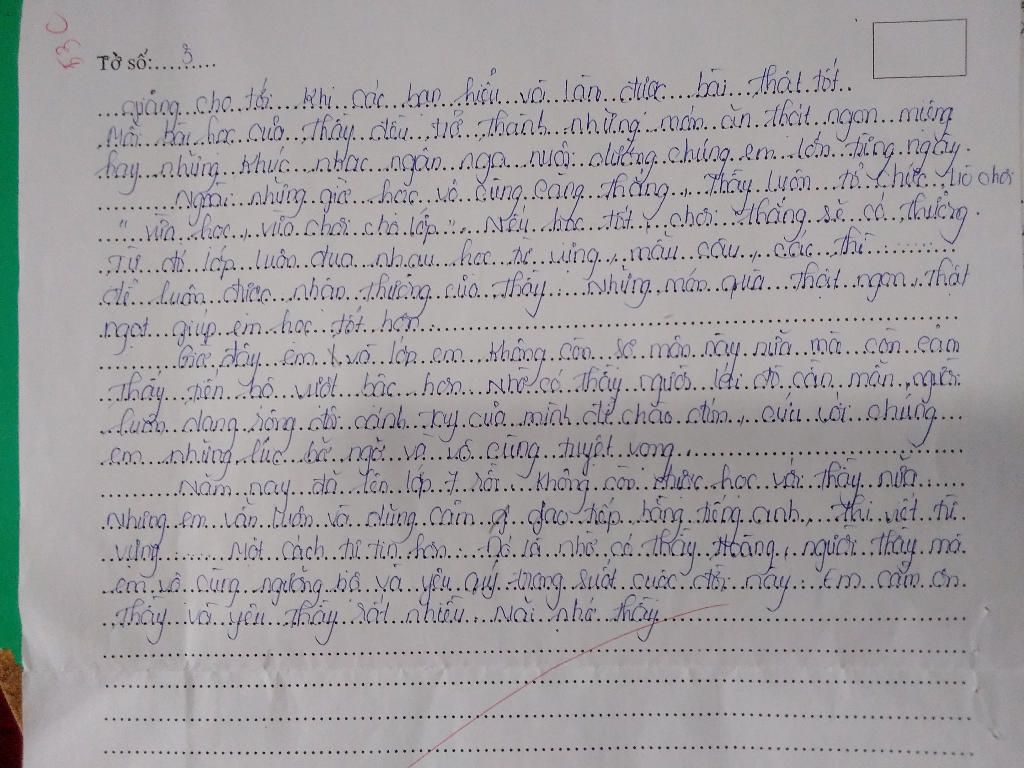 33C
Tờ số: 3
giảng cho tới khi các bạn hiểu và làm được bài thật tốt
Mỗi bài học của thầy đều trở thành những món ăn thật ngon miệng
hay những khúc nhạc ngân nga nuôi dưỡng chúng em lớn từng ngày.
Ngoài những giờ học vô cùng căng thẳng, Thầy luôn tổ chức trò chơi
"vừa học, vừa chơi cho lớp". Nếu học tốt, chơi thắng sẽ có thưởng.
Từ đó lớp luôn đua nhau học từ vựng, mẫu câu, các thì
để luôn được nhận thưởng của thầy. Những món quà thật ngon, thật
ngọt giúp em học tốt hơn
Giờ đây em và lớp em không còn sợ môn này nữa mà còn cảm
thấy tiến bộ vượt bậc hơn. Nhờ có thầy người lái đò cần mẫn, người
luôn dang rộng đôi cánh tay của mình để chào đón, cứu với chúng
em những lúc bỡ ngỡ và vô cùng tuyệt vọng
Năm nay đã lên lớp 7 rồi. Không còn được học với thầy nữa
nhưng em vẫn luôn và dũng cảm giao tiếp bằng tiếng anh, thi viết từ
vựng Một cách tự tin hơn. Đó là nhờ có thầy Hoàng, người thầy mà
em vô cùng ngưỡng bộ và yêu quý trong suốt cuộc đời này. Em cảm ơn
thầy và yêu thầy rất nhiều. Mãi nhớ thầy